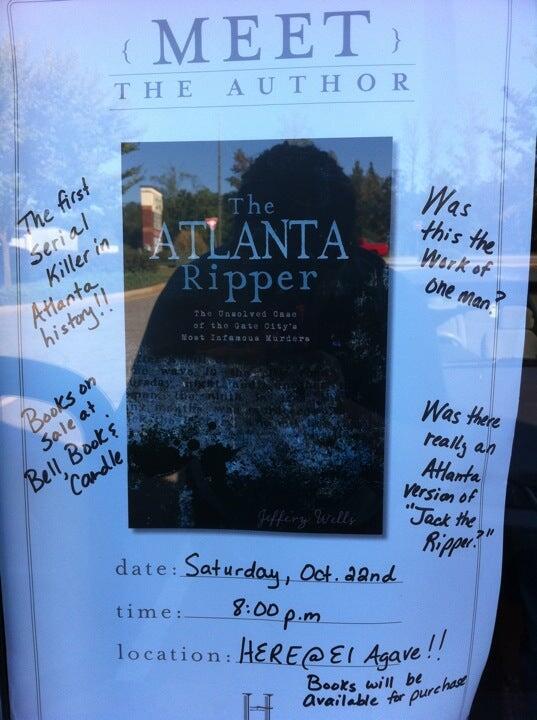 { MEET }
THE AUTHOR
The first
serial
Killer in
Atlanta
history!!
Books on
sale at
Bell, Book &
Candle
The
ATLANTA
Ripper
The Unsolved Case
of the Gate City's
Most Infamous Murders
Jeffery Wells
Was
this the
Work of
one man?
Was there
really an
Atlanta
version of
"Jack the
Ripper?"
date: Saturday, Oct. 22nd
time: 8:00 p.m
location: HERE @ El Agave!!
Books will be
available for purchase
H